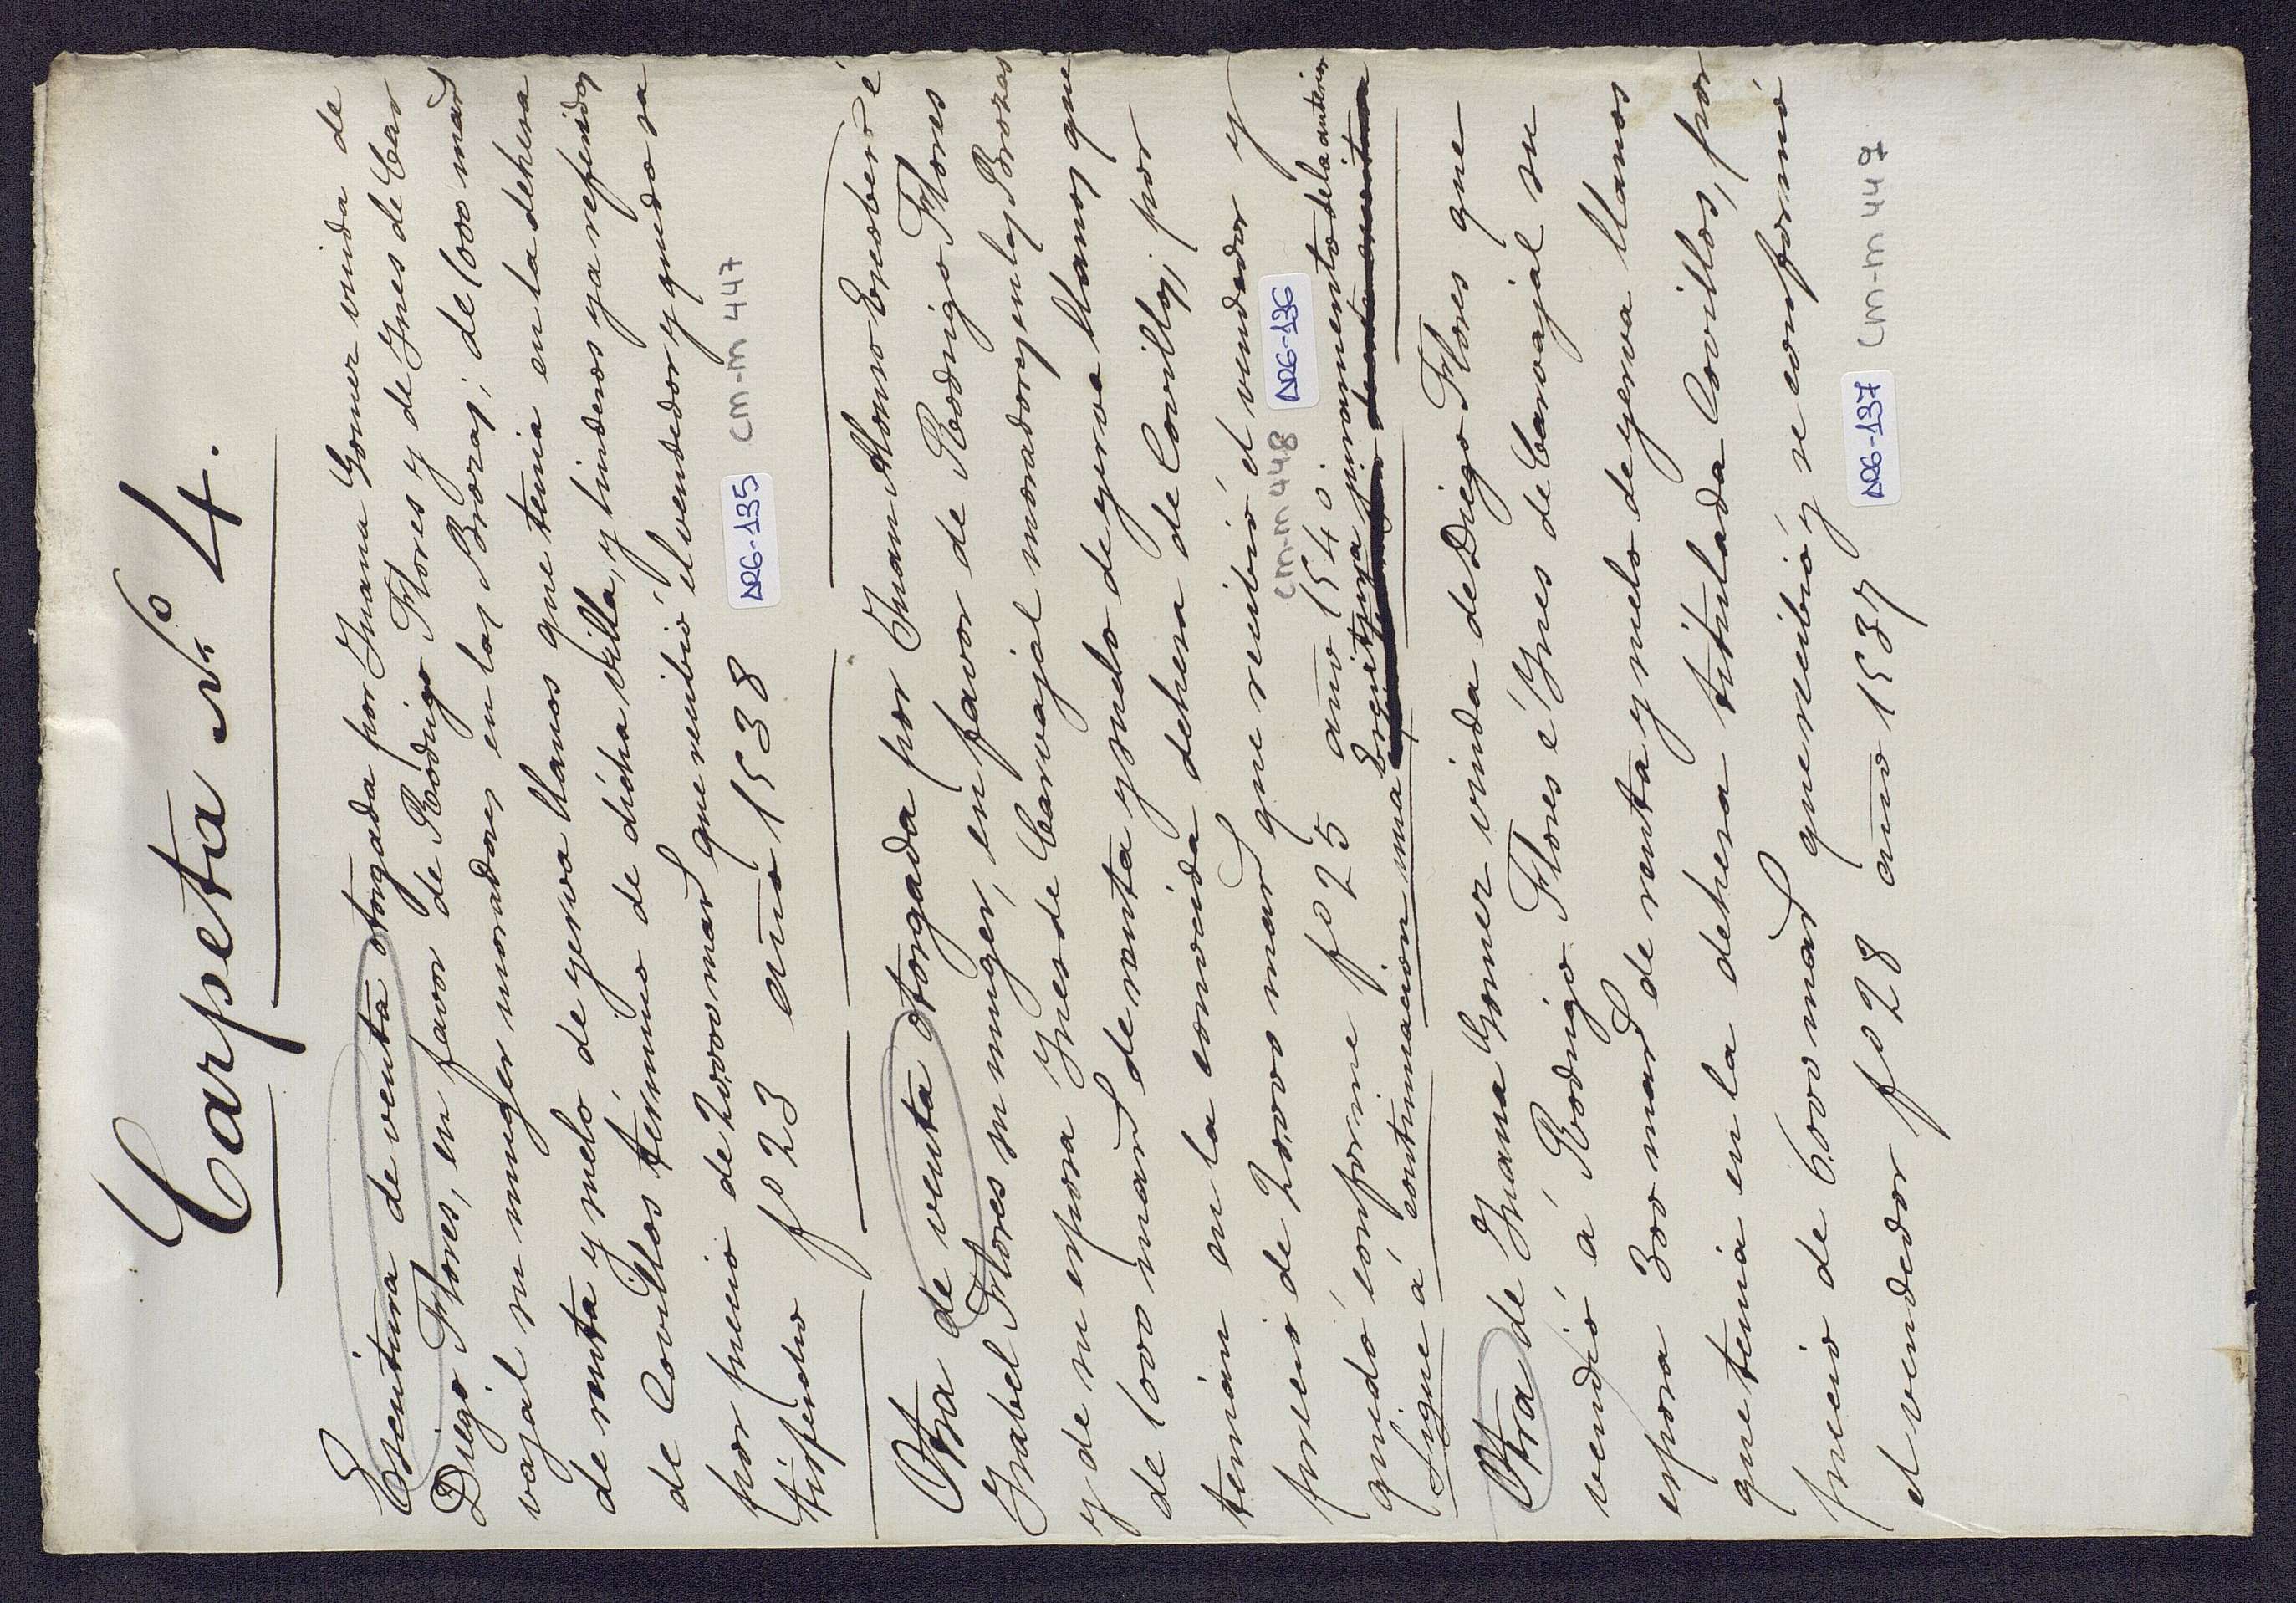 Carpeta Nº 4.
Escritura de venta otorgada por Juana Gomez viuda de
Diego Flores, en favor de Rodrigo Flores y de Ynes de Car
vajal su muger moradores en las Brozas; de 1.000 mars
de renta y suelo de yerva llamos que tenia en la dehesa
de Covillos término de dicha villa, y linderos ya referidos
por precio de 20.000 mars que recibió el vendedor y quedó sa
tisfecho fº 23 año 1538
ARG-135 CM-M 447
Otra de venta otorgada por Juan Alonso Escobero é
Ysabel Flores su muger, en favor de Rodrigo Flores
y de su esposa Ynes de Carvajal moradores en las Brozas
de 1.000 mars de renta y suelo de yerva llamos que
tenian en la conocida dehesa de Covillos, por
precio de 20.000 mars que recibió el vendedor y
quedó conforme fº 25 año 1540.
CM-M 448 ARG-136
Sigue á continuacion una Escritura juramento de la anterior
Otra de Juana Gomez viuda de Diego Flores que
vendió á Rodrigo Flores é Ynes de Carvajal su
esposa 300 mars de renta y suelo de yerva llamos
que tenia en la dehesa titulada Covillos, por
precio de 6.000 mars que recibió y se conformó
el vendedor fº 28 año 1537
ARG-137 CM-M 449